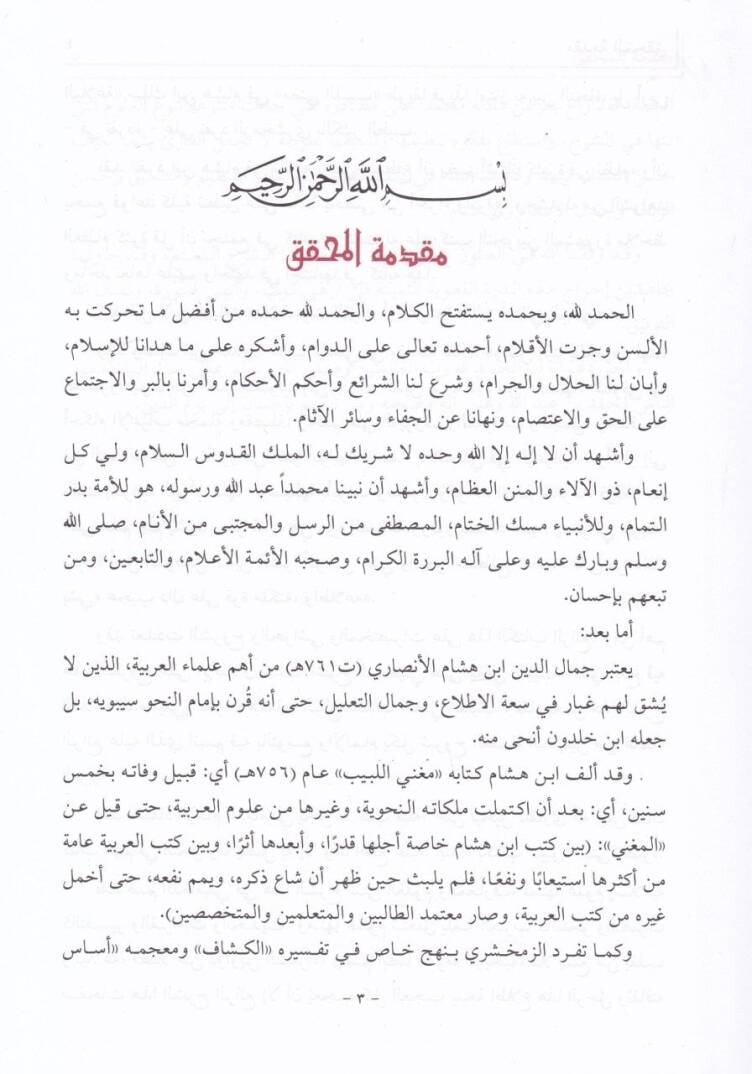 بسم الله الرحمن الرحيم
مقدمة المحقق
الحمد لله، وبحمده يستفتح الكلام، والحمد لله حمده من أفضل ما تحركت به
الألسن وجرت الأقلام، أحمده تعالى على الدوام، وأشكره على ما هدانا للإسلام،
وأبان لنا الحلال والحرام، وشرع لنا الشرائع وأحكم الأحكام، وأمرنا بالبر والاجتماع
على الحق والاعتصام، ونهانا عن الجفاء وسائر الآثام.
وأشهد أن لا إله إلا الله وحده لا شريك له، الملك القدوس السلام، ولي كل
إنعام، ذو الآلاء والمنن العظام، وأشهد أن نبينا محمداً عبد الله ورسوله، هو للأمة بدر
التمام، وللأنبياء مسك الختام، المصطفى من الرسل والمجتبى من الأنام، صلى الله
وسلم وبارك عليه وعلى آله البررة الكرام، وصحبه الأئمة الأعلام، والتابعين، ومن
تبعهم بإحسان.
أما بعد:
يعتبر جمال الدين ابن هشام الأنصاري (ت٧٦١هـ) من أهم علماء العربية، الذين لا
يُشق لهم غبار في سعة الاطلاع، وجمال التعليل، حتى أنه قُرن بإمام النحو سيبويه، بل
جعله ابن خلدون أنحى منه.
وقد ألف ابن هشام كتابه «مغني اللبيب» عام (٧٥٦هـ) أي: قبيل وفاته بخمس
سنين، أي: بعد أن اكتملت ملكاته النحوية، وغيرها من علوم العربية، حتى قيل عن
«المغني»: (بين كتب ابن هشام خاصة أجلها قدرًا، وأبعدها أثرًا، وبين كتب العربية عامة
من أكثرها استيعابًا ونفعًا، فلم يلبث حين ظهر أن شاع ذكره، ويمم نفعه، حتى أخمل
غيره من كتب العربية، وصار معتمد الطالبين والمتعلمين والمتخصصين).
وكما تفرد الزمخشري بنهج خاص في تفسيره «الكشاف» ومعجمه «أساس
- ٣ -